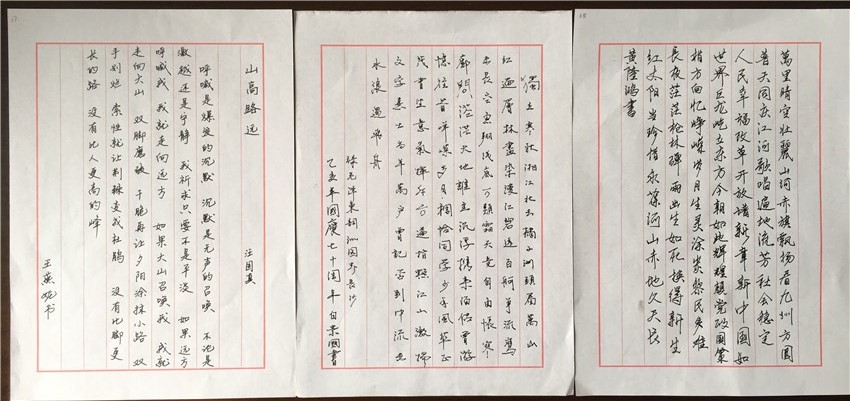 山高路远 汪国真
呼喊是爆发的沉默 沉默是无声的召唤 不论是
激越还是宁静 我祈求只要不是平淡 如果远方
呼喊我 我就走向远方 如果大山召唤我 我就
走向大山 双脚磨破 干脆再让夕阳涂抹小路 双
手划烂 索性就让荆棘变成杜鹃 没有比脚更
长的路 没有比人更高的峰
王燕妮书
獨立寒秋湘江北去橘子洲頭看萬山
红遍層林盡染漫江碧透百舸争流鹰
击長空魚翔浅底万類霜天竞自由悵寥
廓問蒼茫大地誰主沉浮携来百侣曾游
憶往昔崢嶸岁月稠恰同学少年風华正
茂書生意氣揮斥方遒指點江山激揚
文字粪土当年萬户曾記否到中流击
水浪遏飛舟
錄毛泽東詞沁园春長沙
乙亥年國慶七十周年 國書
萬里晴空壮麗山河赤旗飘揚看九州方圆
普天同庆江河歌唱遍地流芳社会穩定
人民幸福改革开放譜新章新中国如
世界巨龙屹立东方今朝如此輝煌赖党政国策
指方向忆峥嵘岁月生灵涂炭黎民灾难
長夜茫茫枪林弹雨出生如死换得新生
红太阳当珍惜永葆河山赤地久天长
黄陸鸣書